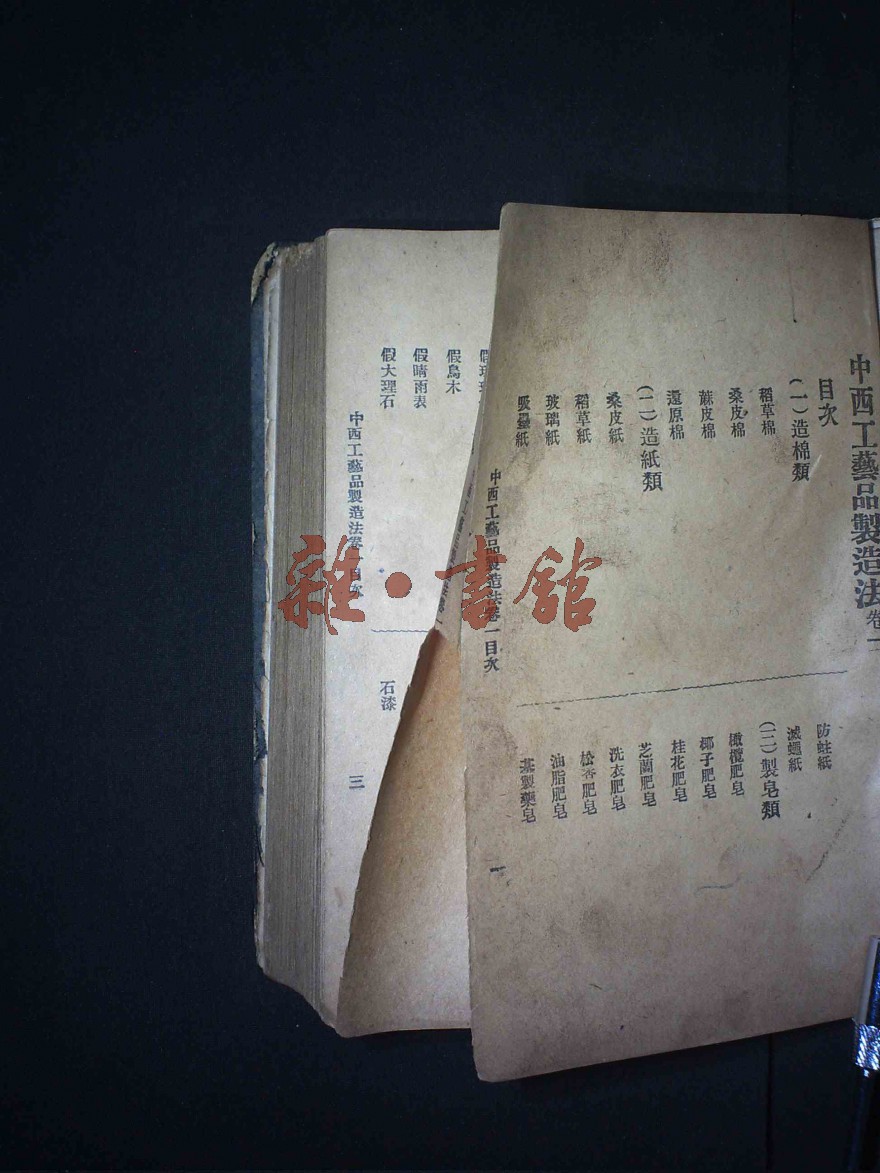 中西工藝品製造法卷一
目次
(一)造棉類
稻草棉
桑皮棉
蔴皮棉
還原棉
(二)造紙類
桑皮紙
稻草紙
玻璃紙
吸墨紙
防蛀紙
滅蠅紙
(三)製皂類
橄欖肥皂
椰子肥皂
桂花肥皂
芝蘭肥皂
洗衣肥皂
松香肥皂
油脂肥皂
中西工藝品製造法卷一目次
一
假烏木
假晴雨表
假大理石
石漆
中西工藝品製造法卷一目次
三
雜·書館